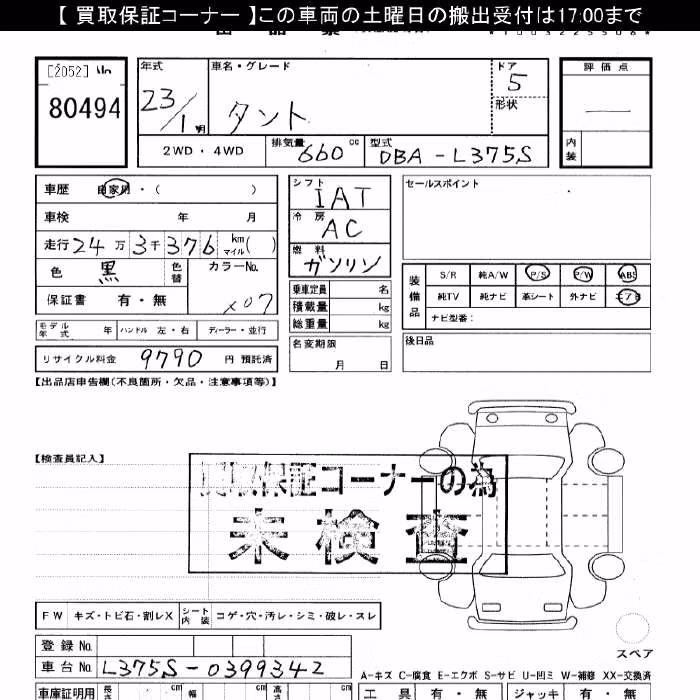 【 買取保証コーナー 】この車両の土曜日の搬出受付は17:00まで
[2052] No
80494
年式 23/1 月
車名・グレード タント
ドア 5
形状
評価点 —
内装
2WD・4WD
排気量 660 cc
型式 DBA-L375S
車歴 自家用・( )
車検 年 月
走行 24万 3千 376 km マイル( )
色 黒 色替 カラーNo. X07
保証書 有・無
シフト IAT
冷房 AC
燃料 ガソリン
乗車定員 名
積載量 kg
総重量 kg
セールスポイント
装備品 S/R 純A/W P/S P/W ABS
純TV 純ナビ 革シート 外ナビ エアB
ナビ型番:
モデル年式 年 ハンドル 左・右 ディーラー・並行
リサイクル料金 9790 円 預託済
名変期限 月 日
後日品
【出品店申告欄(不良箇所・欠品・注意事項等)】
【検査員記入】
買取保証コーナーの為
未検査
FW キズ・トビ石・割レX シート内装 コゲ・穴・汚レ・シミ・破レ・スレ
登録No.
車台No. L375S-0399342
スペア
A-キズ C-腐食 E-エクボ S-サビ U-凹ミ W-補修 XX-交換済
車庫証明用 長さ cm 幅 cm 高さ cm
工具 有・無 ジャッキ 有・無